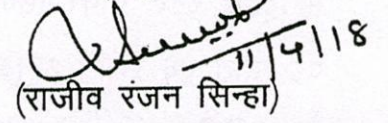 11/4/18
(राजीव रंजन सिन्हा)